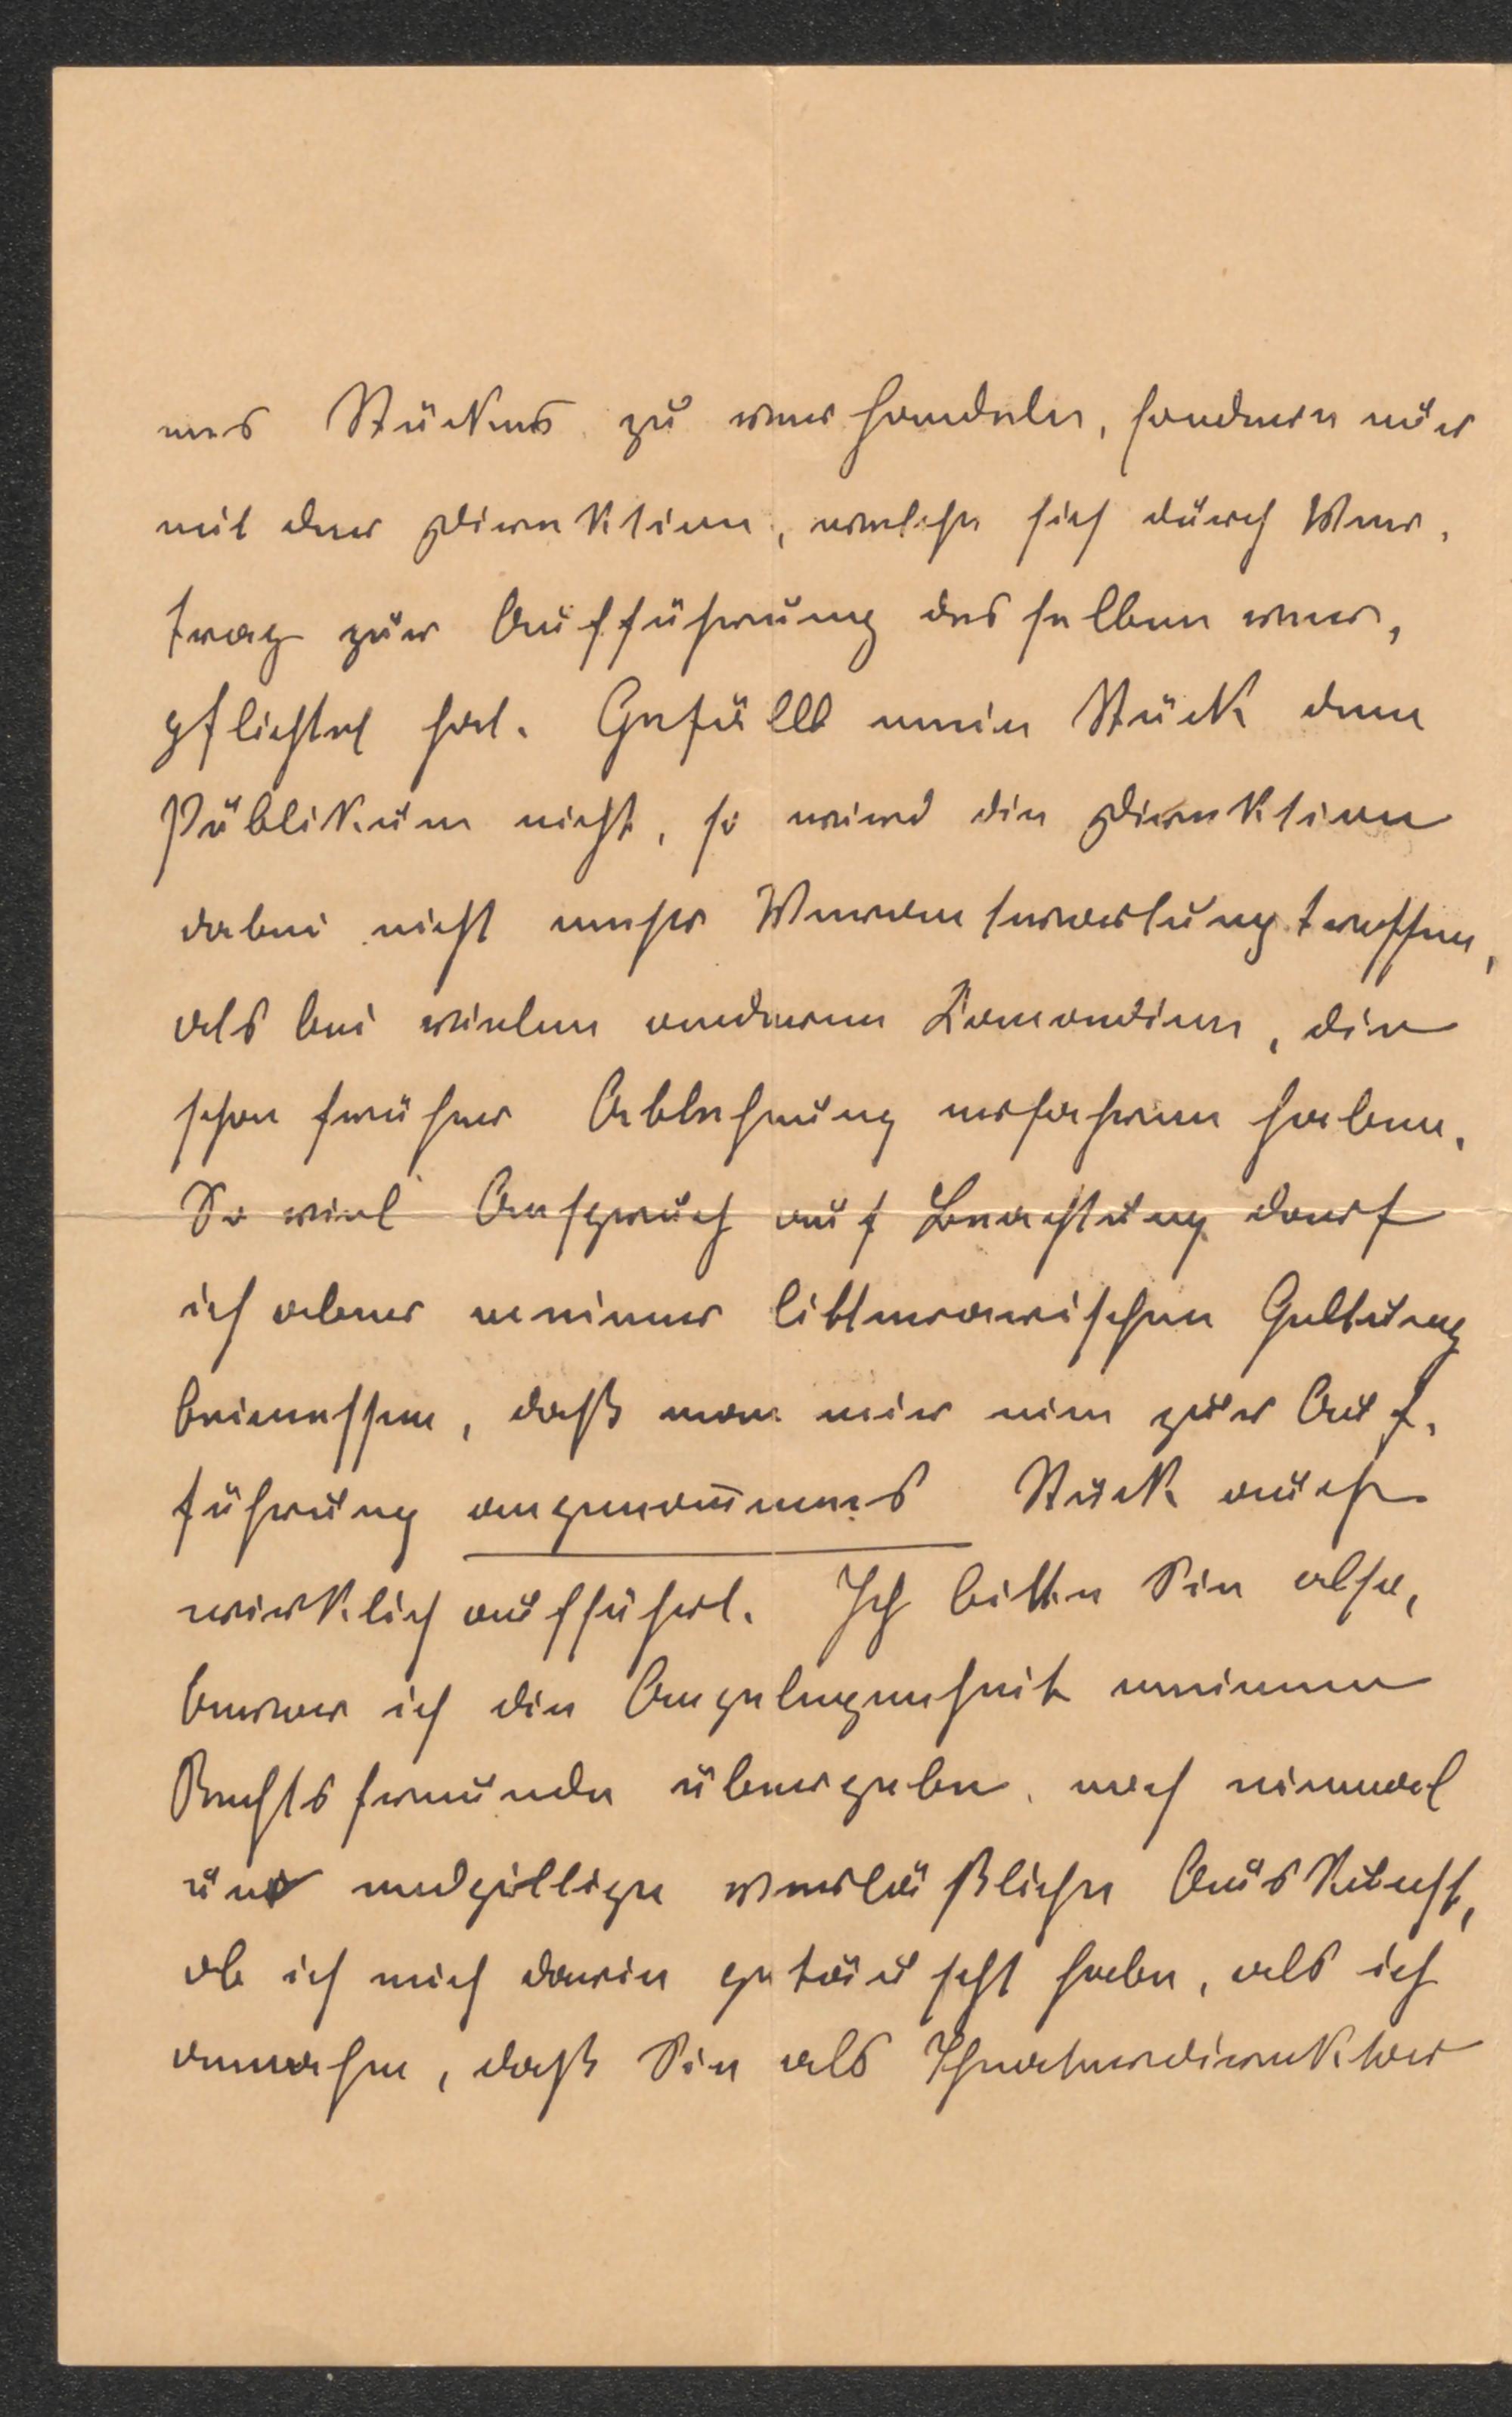 nes Stückes zu verhandeln, sondern nur
mit der Direktion, welche sich durch Ver-
trag zur Aufführung desselben ver-
pflichtet hat. Gefällt mein Stück dem
Publikum nicht, so wird die Direktion
dabei nicht mehr Verantwortung treffen,
als bei vielen anderen Komoedien, die
schon früher Ablehnung erfahren haben.
So viel Anspruch auf Beachtung darf
ich aber meiner litterarischen Geltung
beimessen, daß man mir ein zur Auf-
führung angenom̅enes Stück auch
wirklich aufführt. Ich bitte Sie also,
bevor ich die Angelegenheit meinem
Rechtsfreunde übergebe, noch einmal
um endgillige verläßliche Auskunft,
ob ich mich darin getäuscht habe, als ich
annahm, daß Sie als Theaterdirektor